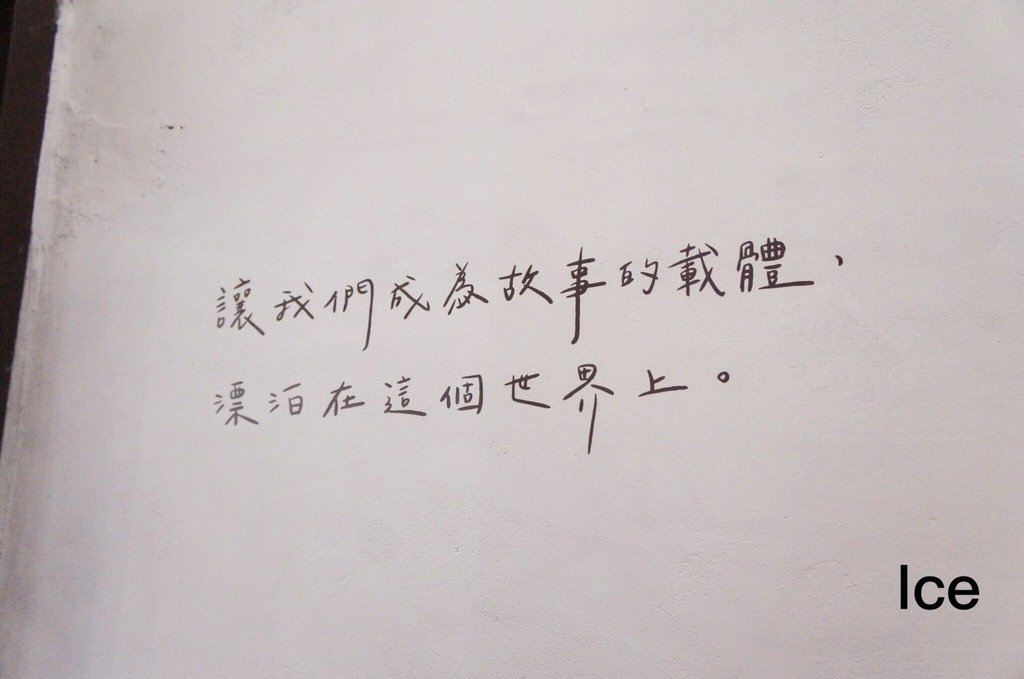 讓我們成為故事的載體，
漂泊在這個世界上。
Ice